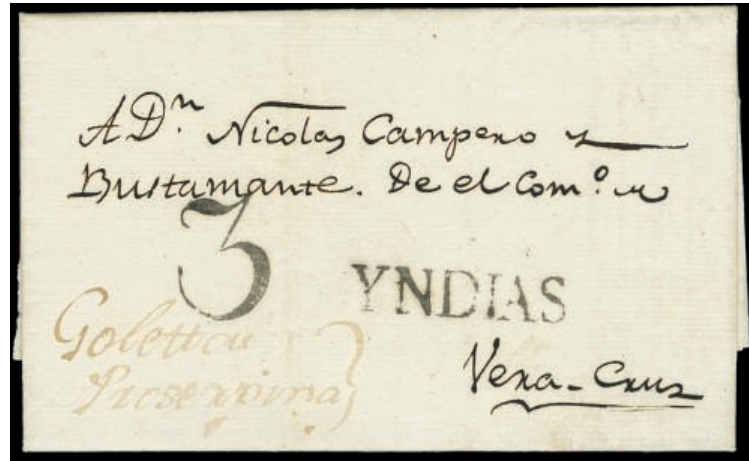 A Dⁿ. Nicolas Campero y
Bustamante. De el Com.º en
3
YNDIAS
Goletta
Proserpina
Vera-Cruz